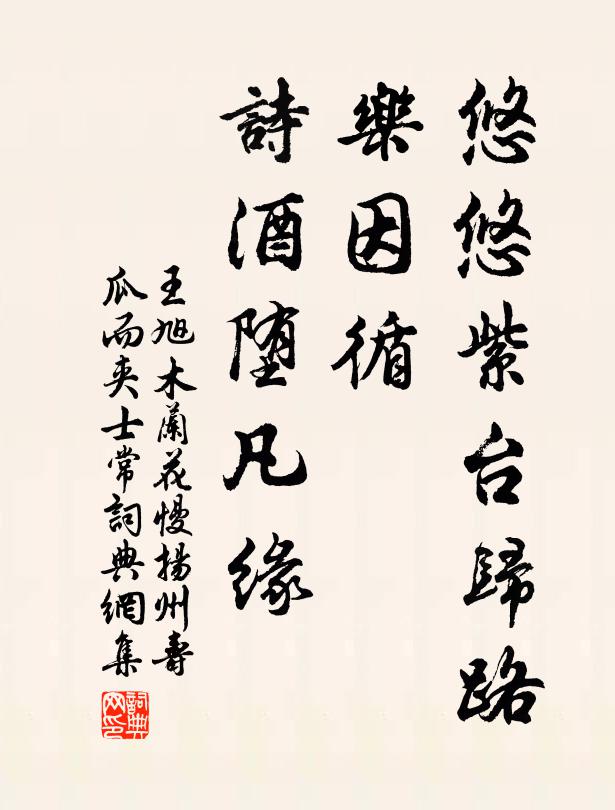 悠悠紫台歸路
樂因循
詩酒堕凡緣
王旭木蘭花慢揚州壽
瓜而夹士常詞典網集
詞典
网印